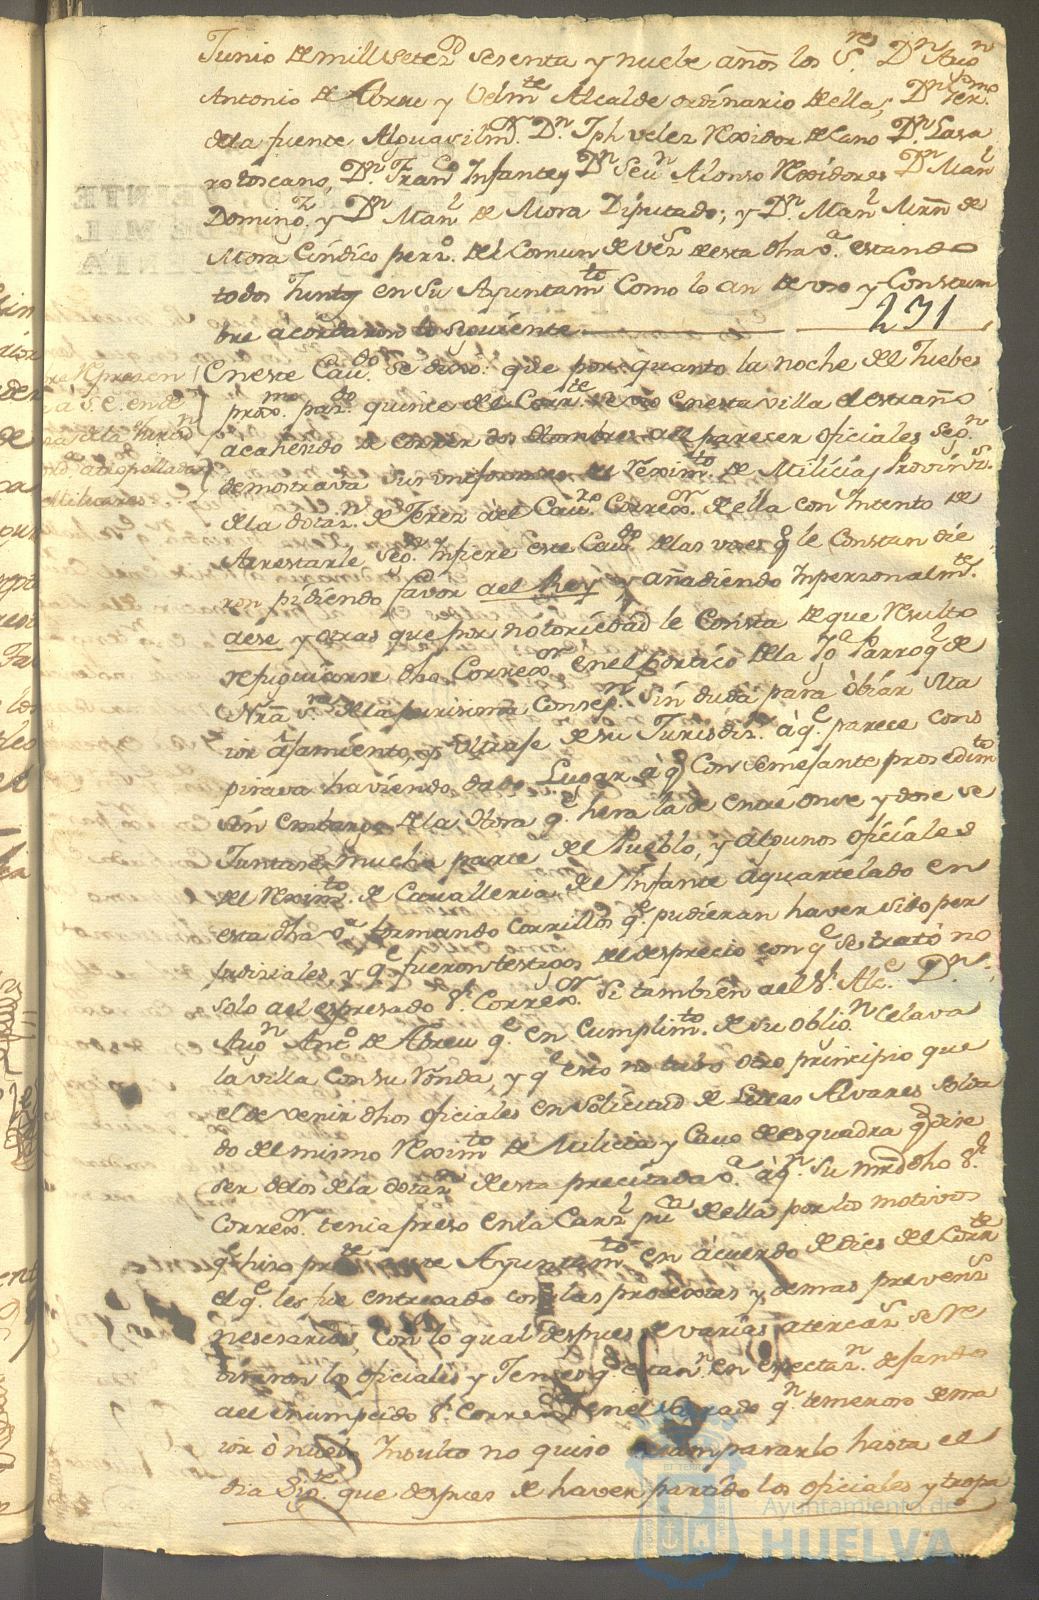 Junio de mill setez.s sesenta y nuebe años los S.res D.n Aug.n
Antonio de Abreu y Velm.te Alcalde ordinario de ella; D.n
de la fuente Alguavil m.r D.n Jph velez Rexidor decano D.n Lasa
ro toscano, D.n Fran.co Infante y D.n Seu.n Alonso Rexidores D.n Man.l
Doming.z y D.n Man.l de Mora Diputado; y D.n Man.l Mrn de
Mora Cindico per.o del Comun de vez.s de esta dha v.a estando
todos Juntos en su Ayuntam.to Como lo an de uso y Constum
bre acordaron lo siguiente
231
En este Cau.do se dixo: que por quanto la noche del Juebes
prox.mo pas.do quince del Corr.te se vio en esta villa el estraño
acahesido de correr dos hombres al parecer oficiales seg.n
demostrava sus uniformes del Reximi.to de Milicias Provin.s
de la dotaz.n de Jerez a el Cau.ro Correx.or de ella con Intento de
Arrestarle seg.n Infiere este Cau.do de las voces q.e le Constan die
ron pidiendo favor a el Rey y añadiendo Inpersonalm.te
a ese y otras que por notoriedad le Consta de que Resulto
refugiarse dho Correx.or en el portico de la Ig.a Parroq.l de
Nrã S.ra de la purisima Consep.n sin duda para obiar
ior y ultraje de su Jurisdiz.n à q.e parece cons
pirava haviendo dado Lugar à q.e Con semejante prosedim.to
sin embargo de la Ora q.e hera la de entre onse y dose se
Juntase mucha parte del Pueblo, y algunos oficiales
del Rexim.to de Cavalleria del Infante aquartelado en
esta dha v.a formando corrillos q.e pudieran haver sido per
judisiales, y q.e fueron testigos del desprecio con q.e se trató no
solo a el espresado S.r Correx.or si también a el S.r Alc.e D.n
Aug.n Ant.o de Abreu q.e en Cumplim.to de su oblig.n Celava
la villa con su Ronda, y q.e esto no tubo otro principio que
el de venir dhos oficiales en solicitud de Lucas Alvares solda
do del mismo Rexim.to de Milicia y Cavo de esquadra q.e dise
ser de los de la dotaz.n de esta precitada v.a à q.n su mrd dho S.r
Correx.or tenia preso en la Carz.l pu.ca de ella por los motivos
q.e hizo pres.te a este Ayuntam.to en acuerdo de dies del Corr.te
el q.e les fue entregado con las protextas y demas preven.s
nesesarias, con lo qual despues de varias atercaz.s se re
tiraron los oficiales y Jente q.e estav.n en espectaz.n dejando
a el enumpeido S.r Correx.or en el Sagrado q.n temeroso de ma
ior ò nuebo Insulto no quiso desampararlo hasta el
dia sig.te que despues de haver partido los oficiales y tropa
re Reprezen
a S.E. en de
Militares
Ayuntamiento de
HUELVA